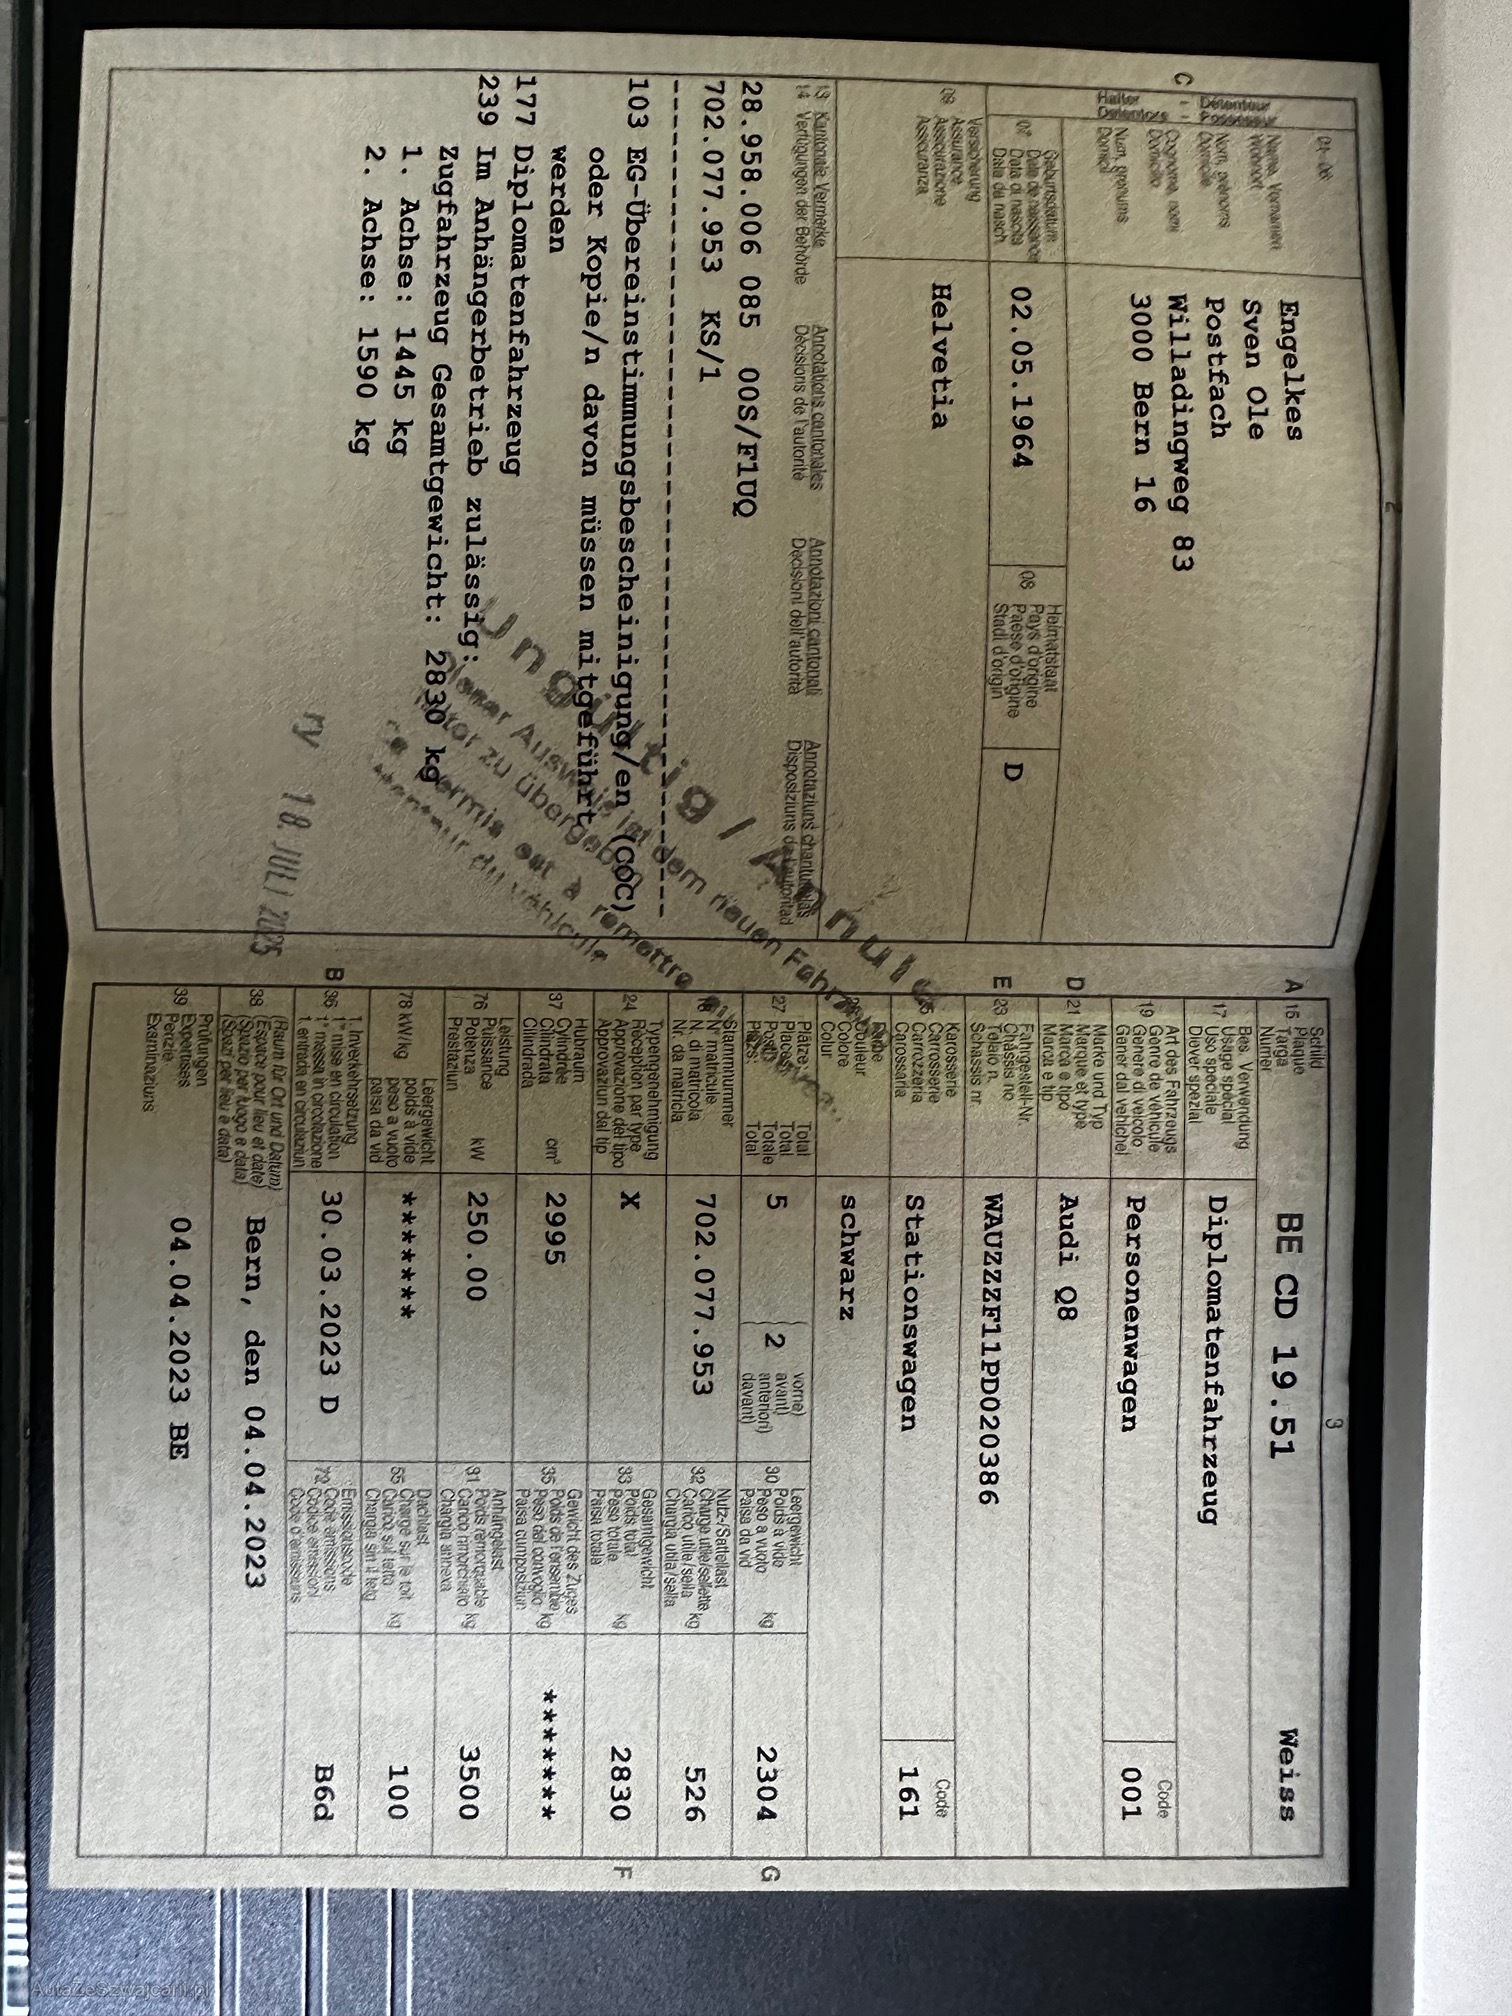 2
01-06
C
Halter - Détenteur
Detentore - Possessur
Name, Vornamen
Wohnort
Nom, prénoms
Domicile
Cognome, nomi
Domicilio
Num, prenums
Domicil
Engelkes
Sven Ole
Postfach
Willadingweg 83
3000 Bern 16
07 Geburtsdatum
Date de naissance
Data di nascita
Data da nasch.
02.05.1964
08 Heimatstaat
Pays d'origine
Paese d'origine
Stadi d'origin
D
09 Versicherung
Assurance
Assicurazione
Assicuranza
Helvetia
13 Kantonale Vermerke Annotations cantonales Annotazioni cantonali Annotaziuns chantunalas
14 Verfügungen der Behörde Décisions de l'autorité Decisioni dell'autorità Disposiziuns da l'autoritad
28.958.006 085 00S/F1UQ
702.077.953 KS/1
103 EG-Übereinstimmungsbescheinigung/en (COC)
oder Kopie/n davon müssen mitgeführt
werden
177 Diplomatenfahrzeug
239 Im Anhängerbetrieb zulässig:
Zugfahrzeug Gesamtgewicht: 2830 kg
1. Achse: 1445 kg
2. Achse: 1590 kg
Ungültig / Annulé
Dieser Ausweis ist dem neuen
zu übergeben
Ce permis est à remettre
du véhicule
ry 18. JULI 2025
3
A 15 Schild
Plaque
Targa
Numer
BE CD 19.51 Weiss
17 Bes. Verwendung
Usage spécial
Uso speciale
Diever spezial
Diplomatenfahrzeug
19 Art des Fahrzeugs
Genre de véhicule
Genere di veicolo
Gener dal vehichel
Personenwagen
Code
001
D 21 Marke und Typ
Marque et type
Marca e tipo
Marca e tip
Audi Q8
E 23 Fahrgestell-Nr.
Châssis no
Telaio n.
Schassis nr.
WAUZZZF11PD020386
25 Karosserie
Carrosserie
Carrozzeria
Carossaria
Stationswagen
Code
161
Farbe
Couleur
Colore
Colur
schwarz
27 Plätze: Total
Places: Total
Posti: Totale
Plazs: Total
5
2
vorne)
avant)
anteriori)
davant)
30 Leergewicht
Poids à vide
Peso a vuoto
Paisa da vid
kg
2304
G
18 Stammnummer
N° matricule
N. di matricola
Nr. da matricla
702.077.953
32 Nutz-/Sattellast
Charge utile/sellette
Carico utile/sella
Chargia utila/sella
kg
526
24 Typengenehmigung
Réception par type
Approvazione del tipo
Approvaziun dal tip
X
33 Gesamtgewicht
Poids total
Peso totale
Paisa totala
kg
2830
F
37 Hubraum
Cylindrée
Cilindrata
Cilindrada
cm³
2995
35 Gewicht des Zuges
Poids de l'ensemble
Peso del convoglio
Paisa cumposiziun
kg
*******
76 Leistung
Puissance
Potenza
Prestaziun
kW
250.00
31 Anhängelast
Poids remorquable
Carico rimorchiato
Chargia annexa
kg
3500
78 kW/kg
Leergewicht
poids à vide
peso a vuoto
paisa da vid
*******
55 Dachlast
Charge sur le toit
Carico sul tetto
Chargia sin il tetg
kg
100
B 36 1. Inverkehrsetzung
1re mise en circulation
1a messa in circolazione
1. entrada en circulaziun
30.03.2023 D
72 Emissionscode
Code émissions
Codice emissioni
Code d'emissiuns
B6d
38 (Raum für Ort und Datum)
(Espace pour lieu et date)
(Spazio per luogo e data)
(Spazi per lieu e data)
Bern, den 04.04.2023
39 Prüfungen
Expertises
Perizie
Examinaziuns
04.04.2023 BE
AutaZeSzwajcarii.pl